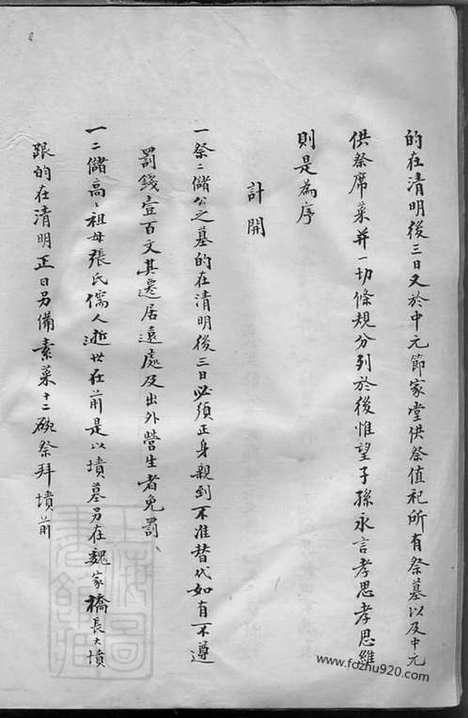 的在清明後三日又於中元節家堂供祭值祀所有祭墓以及中元
供祭席菜并一切條規分列於後惟望子孫永言孝思孝思維
則是為序
計開
一祭二儲公之墓的在清明後三日必須正身親到不准替代如有不遵
罰錢壹百文其遷居遠處及出外營生者免罰
一二儲高祖母張氏儒人逝世在前是以墳墓另在魏家橋長大墳
跟的在清明正日另備素菜十二碗祭拜墳前
www.fozhu920.com